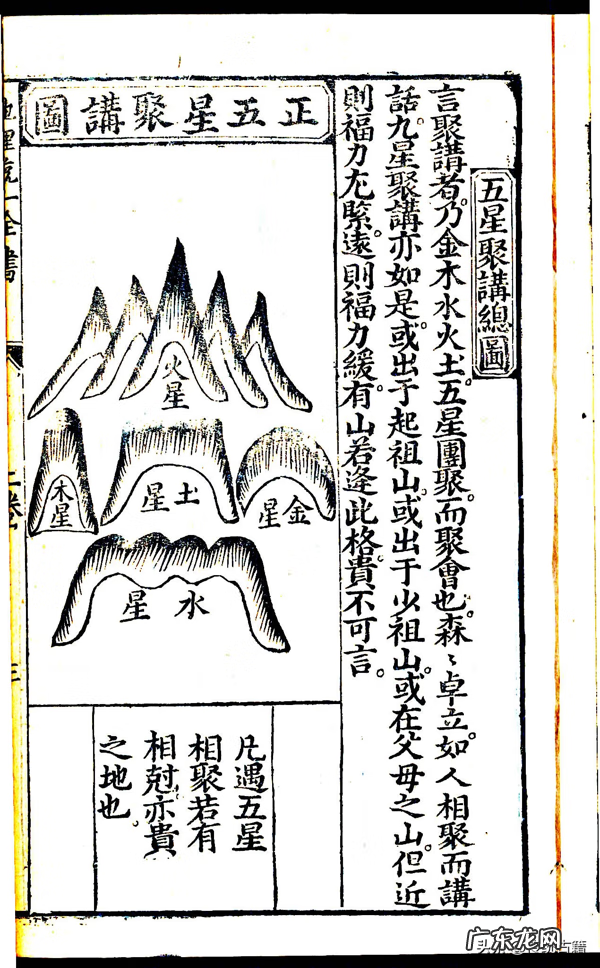 五星聚講總圖
言聚講者。乃金木水火土。五星團聚。而聚會也。森〻卓立。如人相聚而講
話。九星聚講亦如是。或出于起祖山。或出于少祖山。或在父母之山。但近
則福力尤緊。遠則福力緩。有山若逢此格。貴不可言。
正五星聚講圖
火星
木星
土星
金星
水星
凡遇五星
相聚若有
相尅亦貴
之地也。
地理統一全書
二卷
三
广东龙网